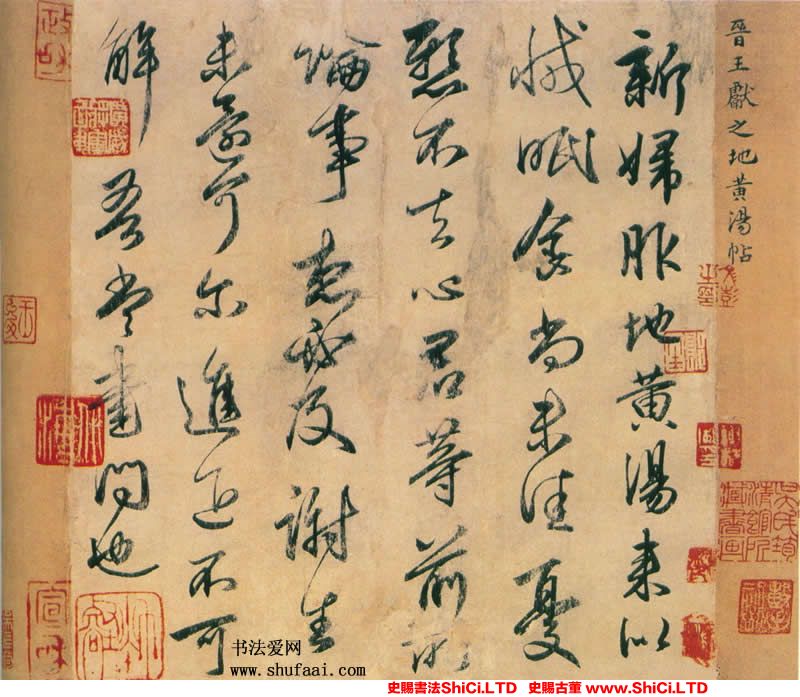 晉王獻之地黃湯帖
新婦服地黃湯來似
減眠食尚未佳憂
懸不去心君等前所
論事想必及謝生
未還何尔進退不可
解吾當書問也
书法爱网
www.shufaai.com
史賜書法ShiCi.LTD 史賜古董 www.ShiCi.LTD